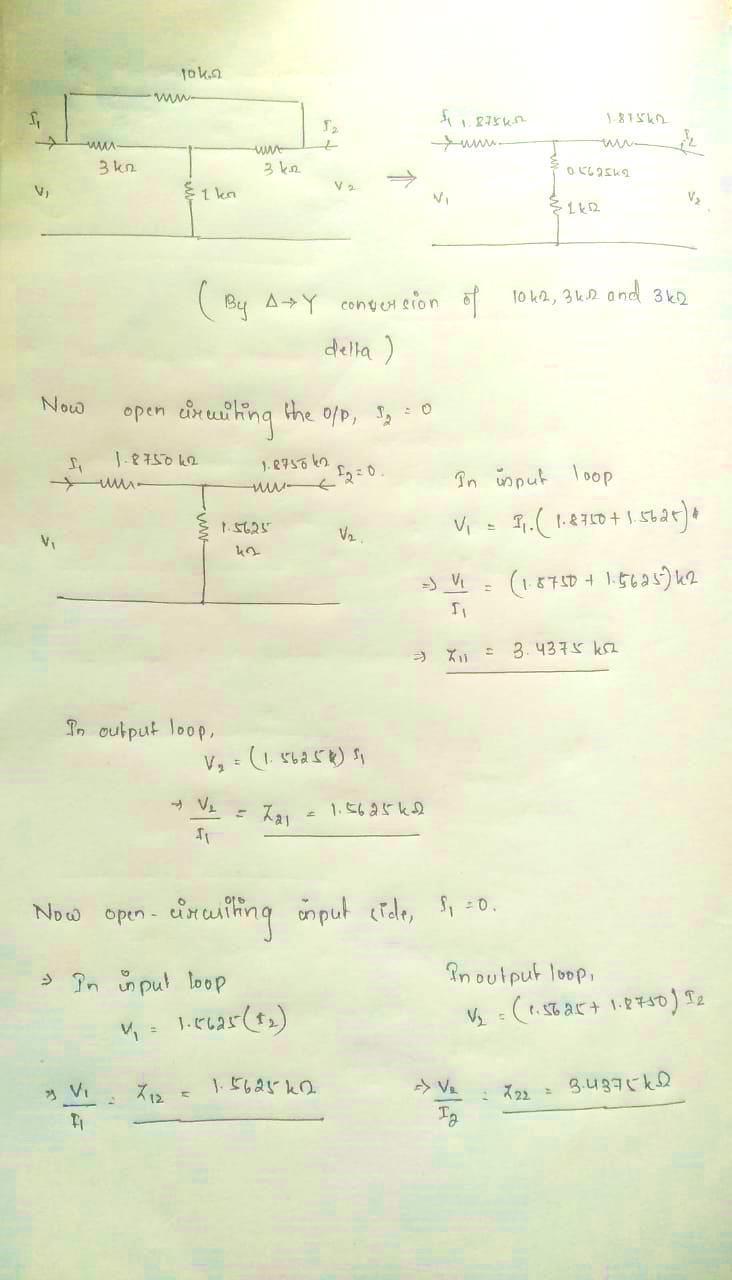 10kΩ
I1
I2
3kΩ
3kΩ
V1
1kΩ
V2
⇒
I1 1.875kΩ
1.875kΩ
I2
0.5625kΩ
V1
1kΩ
V2
(By Δ→Y conversion of 10kΩ, 3kΩ and 3kΩ
delta)
Now open circuiting the o/p, I2 = 0
I1 1.8750kΩ
1.8750kΩ I2=0.
V1
1.5625
kΩ
V2.
In input loop
V1 = I1.(1.8750+1.5625)
⇒ V1/I1 = (1.8750 + 1.5625)kΩ
⇒ Z11 = 3.4375 kΩ
In output loop,
V2 = (1.5625k) I1
⇒ V2/I1 = Z21 = 1.5625kΩ
Now open-circuiting input side, I1 = 0.
⇒ In input loop
V1 = 1.5625(I2)
⇒ V1/I1 = Z12 = 1.5625kΩ
In output loop,
V2 = (1.5625 + 1.8750) I2
⇒ V2/I2 = Z22 = 3.4375kΩ